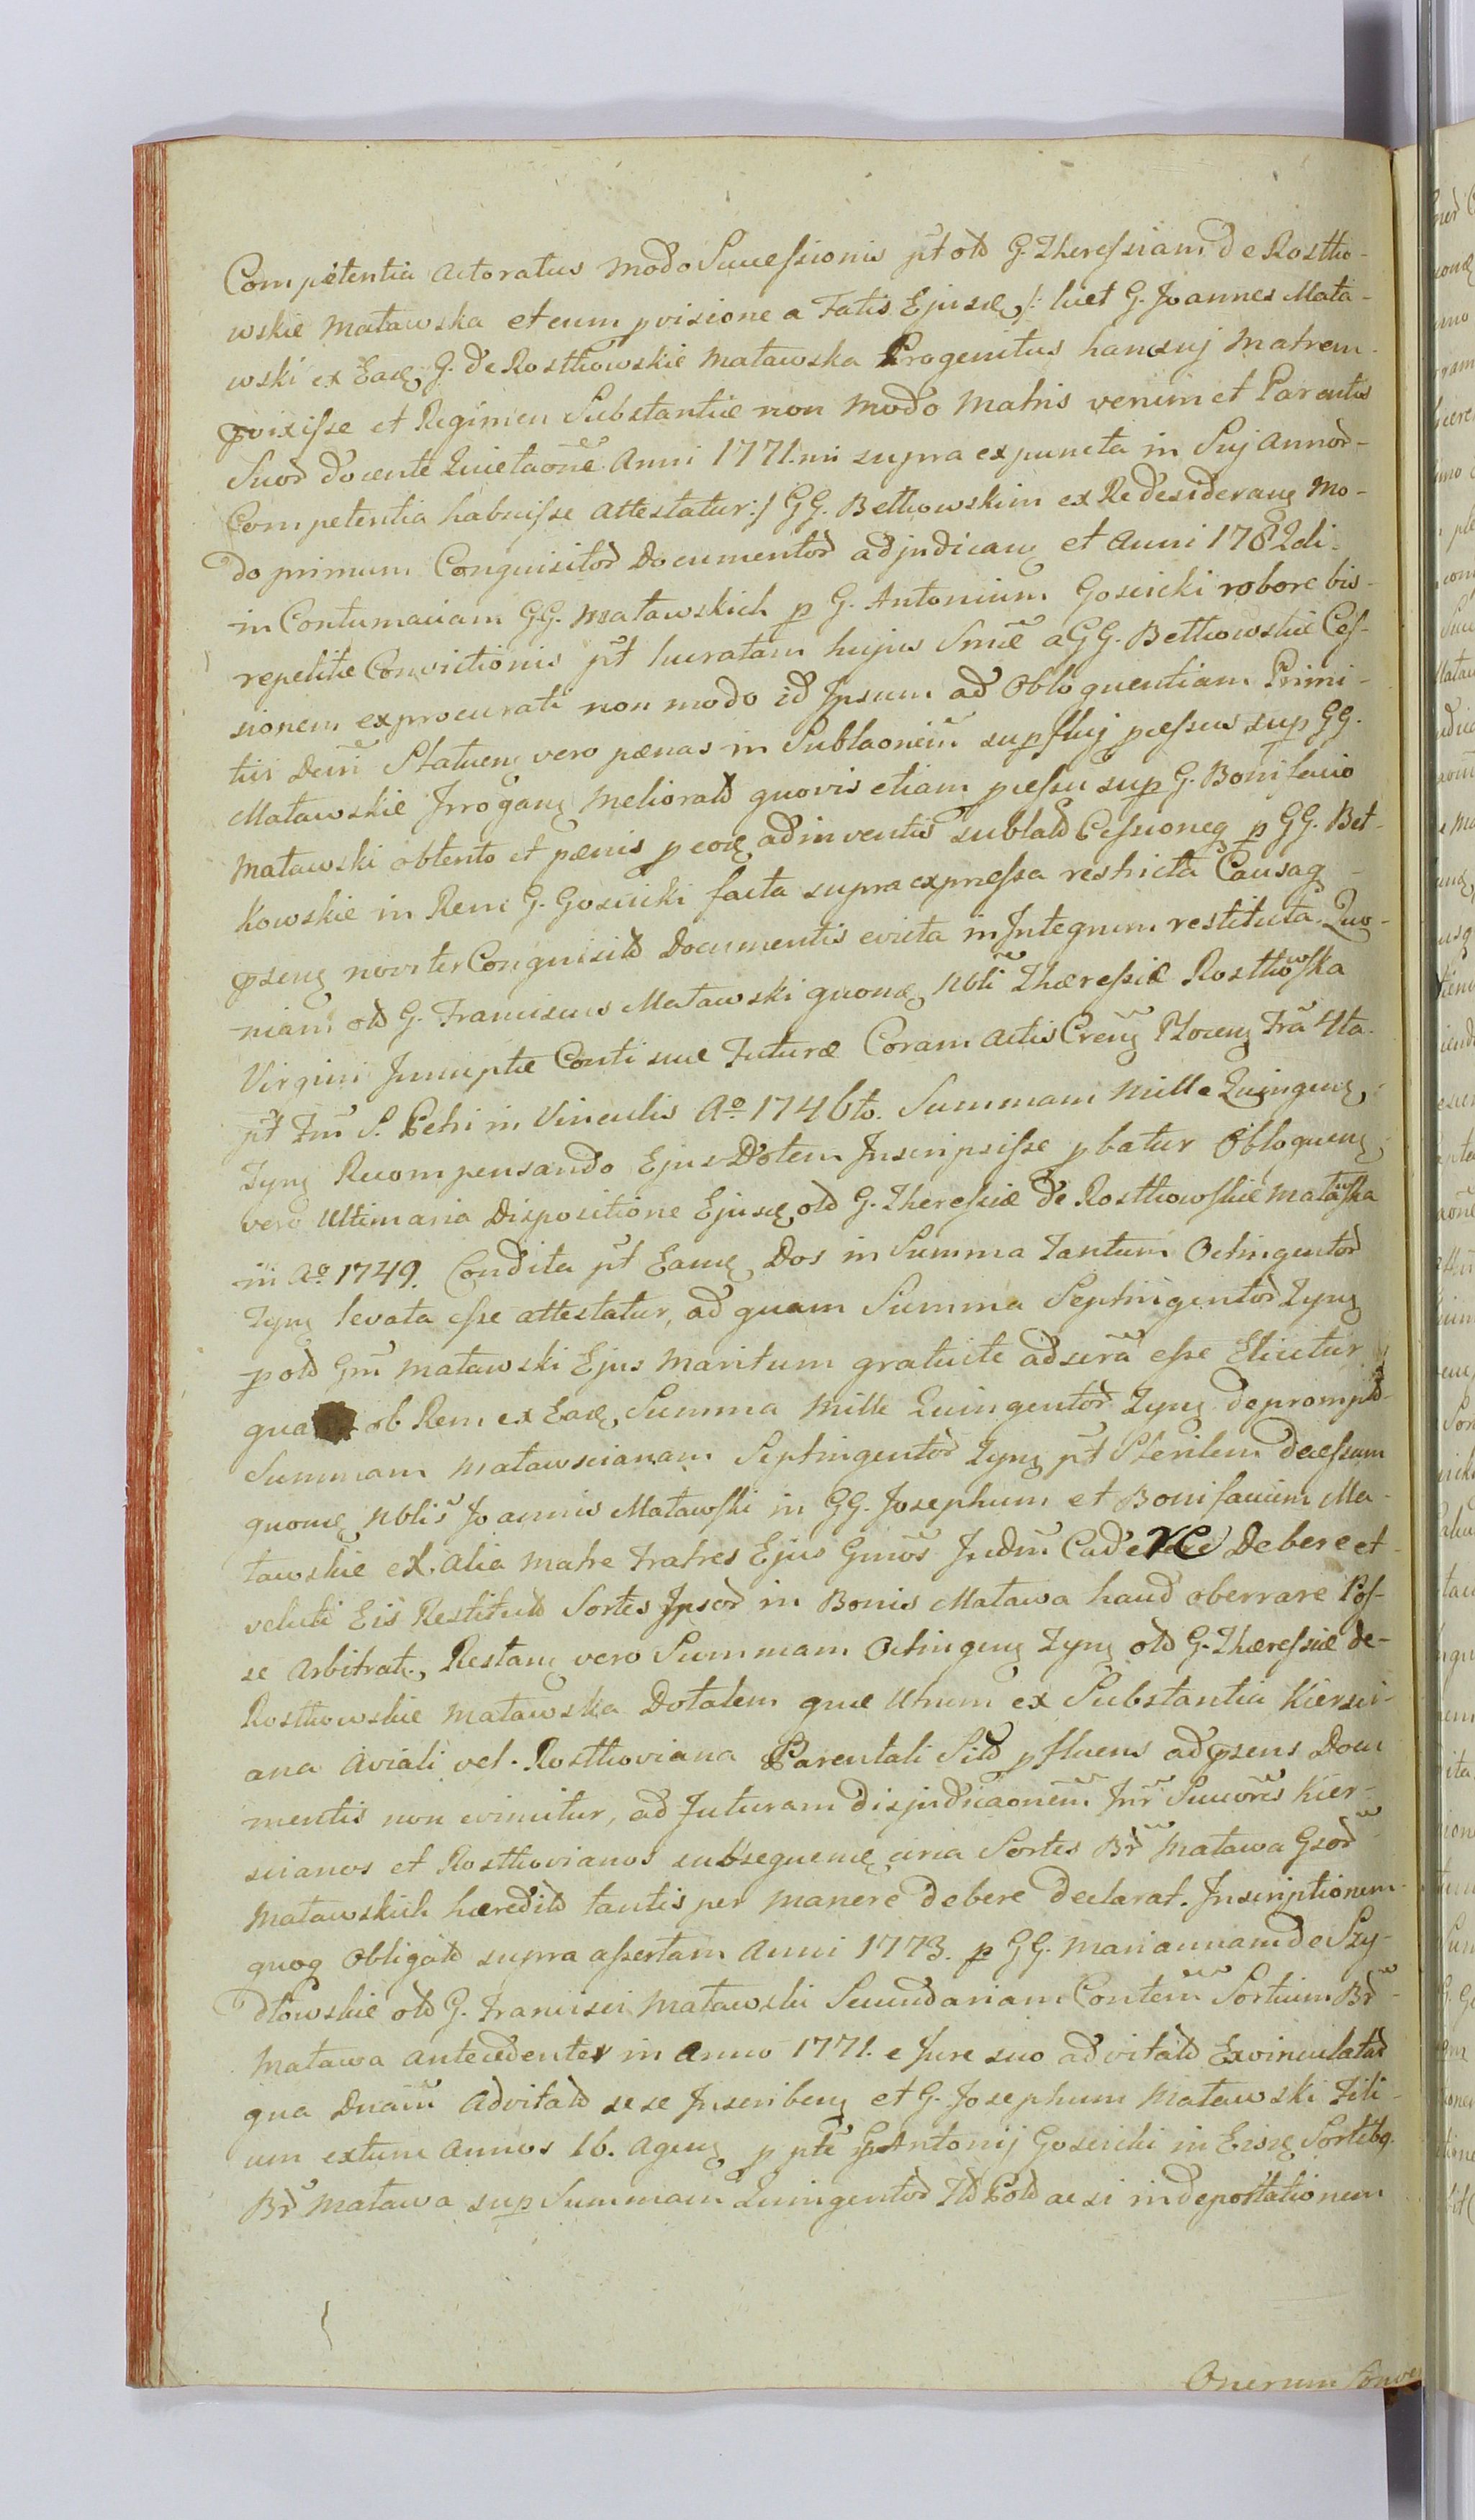 Competentia actoratus modo Successionis pt old G. Theressiam de Rostko-
wskie Matawska et cum pvisione a Fatis Ejusq /: licet G. Joannes Mata-
wski ex Eaq G. de Rostkowskie Matawska Progenitus hancuj Matrem
pvixisse et Regimen Substantiæ non modo Matris verum et Parentis
Suor docente Quietaone Anni 1771. mi supra expuncta in Suj annor-
Competentia habuisse attestatur :/ GG. Betkowskim ex Re desiderang mo-
do primum Conquisitor Documentor adjudicang et Anni 1782di
in Contumaciam GG. Matawskich p G. Antonium Goscicki robore bis-
repetitæ Convictionis pt lucratam hujus Smæ a GG. Betkowskie Ces-
sionem exprocurati non modo id Ipsum ad Obloquentiam Primi-
tivi Decri Statueng vero pænas in Sublaonem supfluj pcessus sup GG.
Matawskie Irrogang meliorald quovis etiam pcessu sup G. Bonifacio
Matawski obtento et pænis p eoq adinventis sublatd Cessioneq p GG. Bet-
kowskie in Rem G. Goscicki facta supra expressa restricta Causaq
pseng noviter Conquisitd Documentis evicta in Integrum restituta. Quo-
niam old G. Franciscus Matawski quonq nbli Theressiæ Rostkowska
Virgini Innuptæ Conti suæ Futuræ Coram actis Creng Ploceng Fra 4ta
pt Fm S. Petri in Vinculis Ao 1746to. Summam mille Quingeng
Tyng Recompensando Ejus Dotem Inscripsisse pbatur Obloqueng
vero Ultimaria Dispositione Ejusq old G. Theressiæ de Rostkowskie Matawska
in Ao 1749. Condita pt Eamq Dos in Summa Tantum Octingentor
Tyng levata esse attestatur, ad quam Summa Septingentor Tyng
p old Gm Matawski Ejus Maritum gratuite adscra esse Elicitur
qua ob Rem ex Eaq Summa Mille Quingentor Tyng depromptd
Summam Matawscianam Septingentor Tyng pt Sterilem decessum
quonq nblis Joannis Matawski in GG. Josephum et Bonifacium Ma-
tawskie ex alia Matre Fratres Ejus Gmos Judm Cadere Debere et
veluti Eis Restitutd Sortes Ipsor in Bonis Matawa haud oberrare Pos-
se Arbitratq, Restang vero Summam Octingeng Tyng old G. Theressiæ de-
Rostkowskie Matawska Dotalem quæ Unum ex Substantia Kiersci-
ana Aviali vel Rostkoviana Parentali Sitd pfluens ad psens Docu
mentis non evincitur, ad Futuram disjudicaonem Inr Succores Kier-
scianos et Rostkovianos subsequeng circa Sortes Br Matawa Gsor
Matawskich hæreditd tantisper manere debere declarat. Inscriptionem
quoq Obligatd supra assertam Anni 1773. p GG. Mariannam de Szy-
dlowskie old G. Francisci Matawski Secundariam Contem Sortium Br
Matawa antecedenter in anno 1771. e Jure suo advitatd Exvinculatad
qua Dnam Advitatd sese Inscribeng et G. Josephum Matawski Fili-
um extunc Annos 16. Ageng p pte G. Antonij Goscicki in Eisq Sortibq
Br Matawa sup Summam Quingentor Fld Pold ac si in deportationem
Onerum